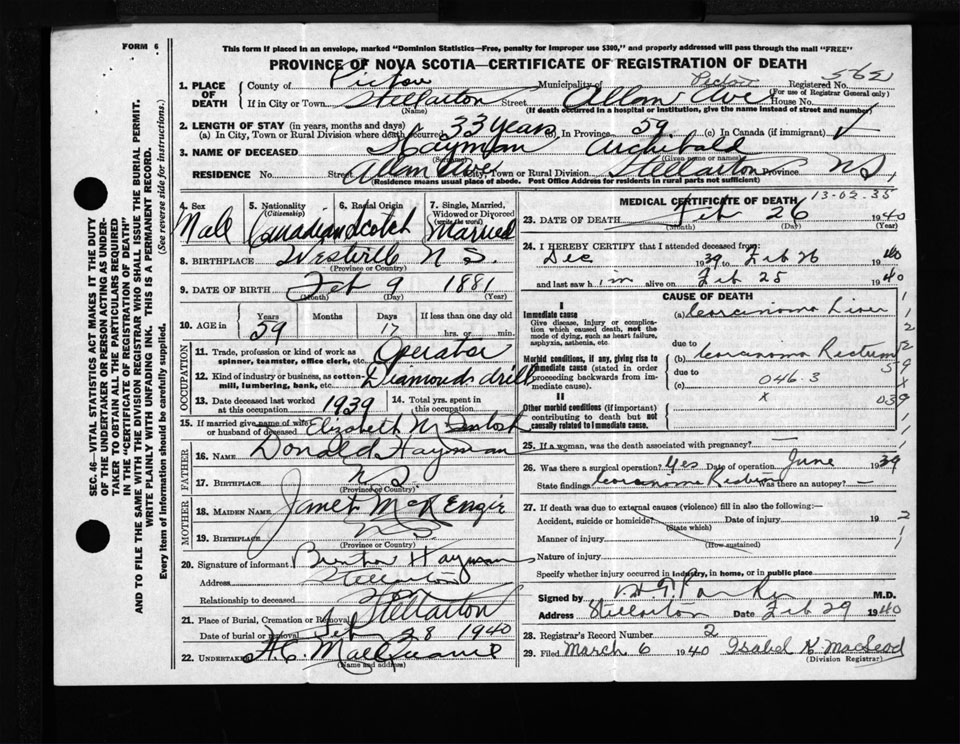 FORM 6
This form if placed in an envelope, marked "Dominion Statistics—Free, penalty for improper use $300," and properly addressed will pass through the mail "FREE"
PROVINCE OF NOVA SCOTIA—CERTIFICATE OF REGISTRATION OF DEATH
1. PLACE OF DEATH County of Pictou Municipality of Pictou Registered No. 562
(For use of Registrar General only)
If in City or Town Stellarton Street Allan Ave House No.
(Name) (If death occurred in a hospital or institution, give the name instead of street and number)
2. LENGTH OF STAY (in years, months and days)
(a) In City, Town or Rural Division where death occurred 33 years (b) In Province 59 (c) In Canada (if immigrant) ✓
3. NAME OF DECEASED Hayman Archibald
(Surname) (Given name or names)
RESIDENCE No. Street Allan Ave City, Town or Rural Division Stellarton Province N.S.
(Residence means usual place of abode. Post Office Address for residents in rural parts not sufficient)
4. Sex 5. Nationality (Citizenship) 6. Racial Origin 7. Single, Married, Widowed or Divorced (write the word)
Male Canadian Scotch Married
8. BIRTHPLACE Westville N.S.
(Province or Country)
9. DATE OF BIRTH Feb 9 1881
(Month) (Day) (Year)
10. AGE in Years Months Days If less than one day old
59 17 hrs. or min.
OCCUPATION
11. Trade, profession or kind of work as spinner, teamster, office clerk, etc. Operator
12. Kind of industry or business, as cotton-mill, lumbering, bank, etc. Diamond drill
13. Date deceased last worked at this occupation 1939 14. Total yrs. spent in this occupation
15. If married give name of wife or husband of deceased Elizabeth McIntosh
FATHER
16. NAME Donald Hayman
17. BIRTHPLACE N S
(Province or Country)
MOTHER
18. MAIDEN NAME Janet McKenzie
19. BIRTHPLACE N S
(Province or Country)
20. Signature of informant Hayman
Address Stellarton
Relationship to deceased
21. Place of Burial, Cremation or Removal Stellarton
Date of burial or removal Feb 28 1940
22. UNDERTAKER A.C.
(Name and address)
MEDICAL CERTIFICATE OF DEATH 13-02-35
23. DATE OF DEATH Feb 26 1940
(Month) (Day) (Year)
24. I HEREBY CERTIFY that I attended deceased from:
Dec 1939 to Feb 26 1940
and last saw him alive on Feb 25 1940
CAUSE OF DEATH
I
Immediate cause
Give disease, injury or complication which caused death, not the mode of dying, such as heart failure, asphyxia, asthenia, etc.
(a) Carcinoma Liver
due to
Morbid conditions, if any, giving rise to immediate cause (stated in order proceeding backwards from immediate cause).
(b) Carcinoma Rectum
due to
(c) 046.3
II
Other morbid conditions (if important) contributing to death but not causally related to immediate cause.
x
25. If a woman, was the death associated with pregnancy? —
26. Was there a surgical operation? Yes Date of operation June 1939
State findings Carcinoma Rectum Was there an autopsy? —
27. If death was due to external causes (violence) fill in also the following:—
Accident, suicide or homicide? Date of injury 19
(State which)
Manner of injury
(How sustained)
Nature of injury
Specify whether injury occurred in industry, in home, or in public place
Signed by Parker M.D.
Address Stellarton Date Feb 29 1940
28. Registrar's Record Number 2
29. Filed March 6 1940 Isabel K. MacLeod
(Division Registrar)
SEC. 46—VITAL STATISTICS ACT MAKES IT THE DUTY
OF THE UNDERTAKER OR PERSON ACTING AS UNDER-
TAKER TO OBTAIN ALL THE PARTICULARS REQUIRED
IN THE "CERTIFICATE OF REGISTRATION OF DEATH"
AND TO FILE THE SAME WITH THE DIVISION REGISTRAR WHO SHALL ISSUE THE BURIAL PERMIT.
WRITE PLAINLY WITH UNFADING INK. THIS IS A PERMANENT RECORD.
Every item of Information should be carefully supplied. (See reverse side for instructions.)